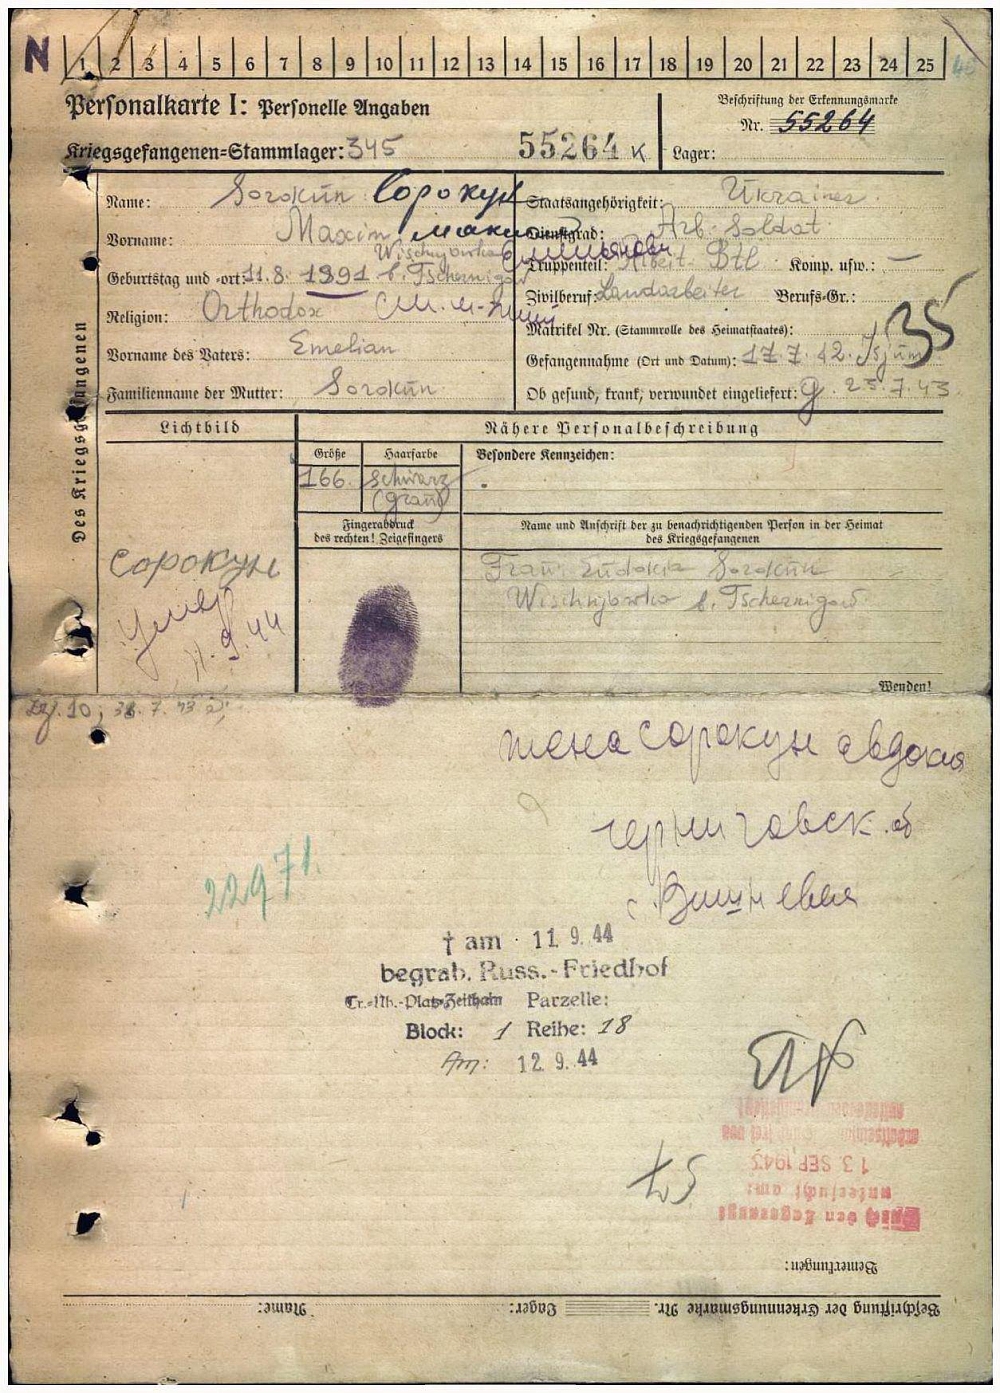 N
1 2 3 4 5 6 7 8 9 10 11 12 13 14 15 16 17 18 19 20 21 22 23 24 25
Personalkarte I: Personelle Angaben
Beschriftung der Erkennungsmarke
Nr. 55264
Kriegsgefangenen-Stammlager: 345 55264 K Lager:
Des Kriegsgefangenen
Name: Sorokun Сорокун
Staatsangehörigkeit: Ukrainer
Vorname: Maxim
Dienstgrad: Arb. Soldat
Wischnjowka
Geburtstag und -ort: 11.8.1891 b. Tschernigow
Truppenteil: Arbeit-Btl Komp. usw.: –
Zivilberuf: Landarbeiter Berufs-Gr.:
Religion: Orthodox
Matrikel Nr. (Stammrolle des Heimatstaates):
35
Vorname des Vaters: Emelian
Gefangennahme (Ort und Datum): 17.7.42. Isjum
Familienname der Mutter: Sorokun
Ob gesund, krank, verwundet eingeliefert: g. 23.7.43
Lichtbild
Nähere Personalbeschreibung
Größe Haarfarbe Besondere Kennzeichen:
166. schwarz
(grau)
Fingerabdruck
des rechten! Zeigefingers
Name und Anschrift der zu benachrichtigenden Person in der Heimat
des Kriegsgefangenen
Frau Eudokia Sorokun
Wischnjowka b. Tschernigow
сорокун
умер
11.9.44
Wenden!
жена сорокун авдокия
черниговск. об
с.
22971.
† am 11.9.44
begrab. Russ.-Friedhof
Tr.-Üb.-Platz Zeithain Parzelle:
Block: 1 Reihe: 18
Am: 12.9.44
13. SEP. 1943
untersucht am:
Bemerkungen:
Beschriftung der Erkennungsmarke Nr. Lager: Name: